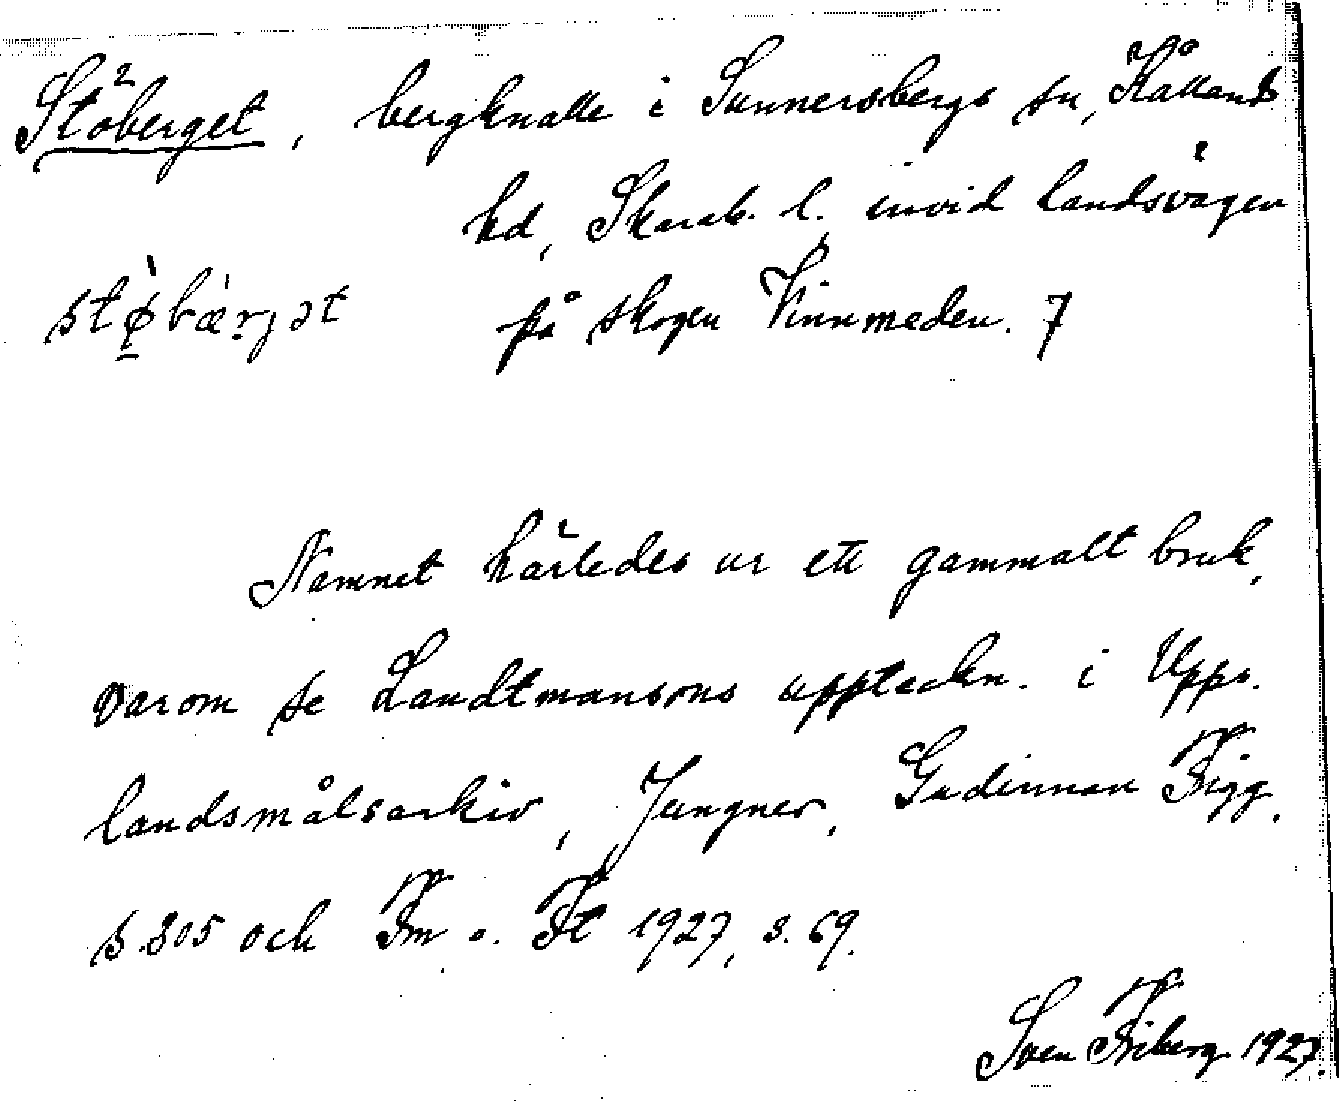 Stöberget, bergknalle i Sunnersbergs sn, Kållands
hd, Skarab. l. invid landsvägen
stø̀bær̀jət på skogen Kinnmeden. 7
Namnet härledes ur ett gammalt bruk,
varom se Landtmansons uppteckn. i Upps.
landsmålsarkiv, Jungner, Gudinnan Frigg,
s. 305 och Fm o. Ft 1927, s. 69.
Sven Friberg 1927.